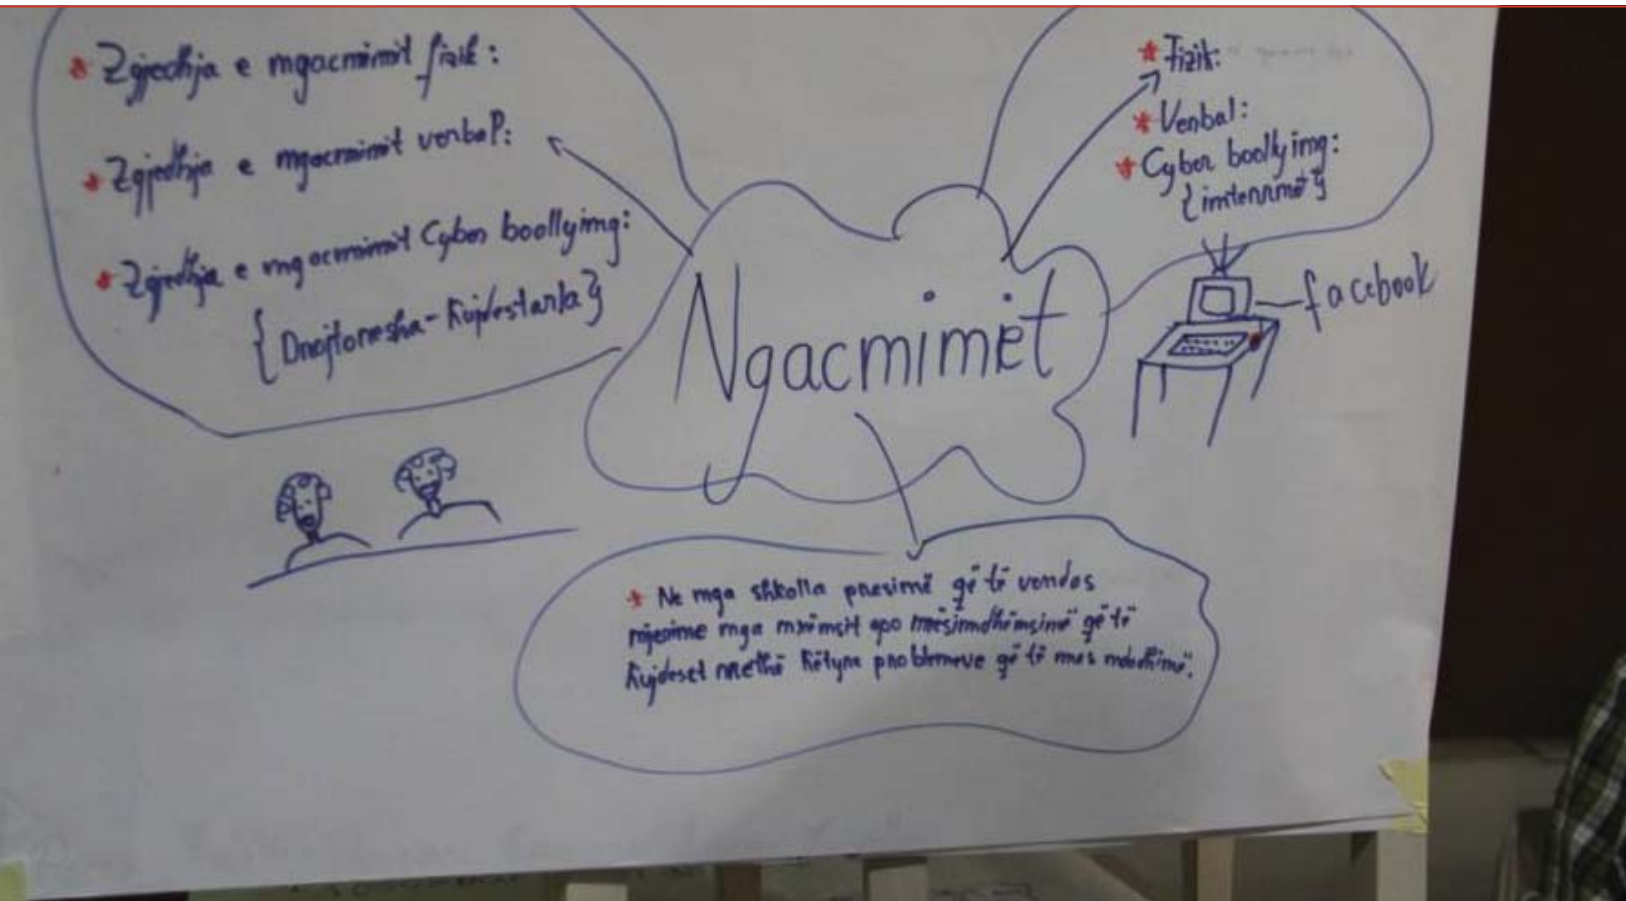 * Zgjedhja e mgacmimit fizik:
* Zgjedhja e mgacmimit verbal:
* Zgjedhja e mgacmimit Cyber boollyimg:
{Drejtoresha - Kujdestarka}
* Fizik:
* Verbal:
* Cyber boollyimg:
{imternmet}
facebook
Ngacmimet
* Ne mga shkolla presimë që të vendos
mga mxëmsit apo mësimdhëmsimë që të
Kujdeset rrethë Këtyre problemeve që të mos mdodhimë.